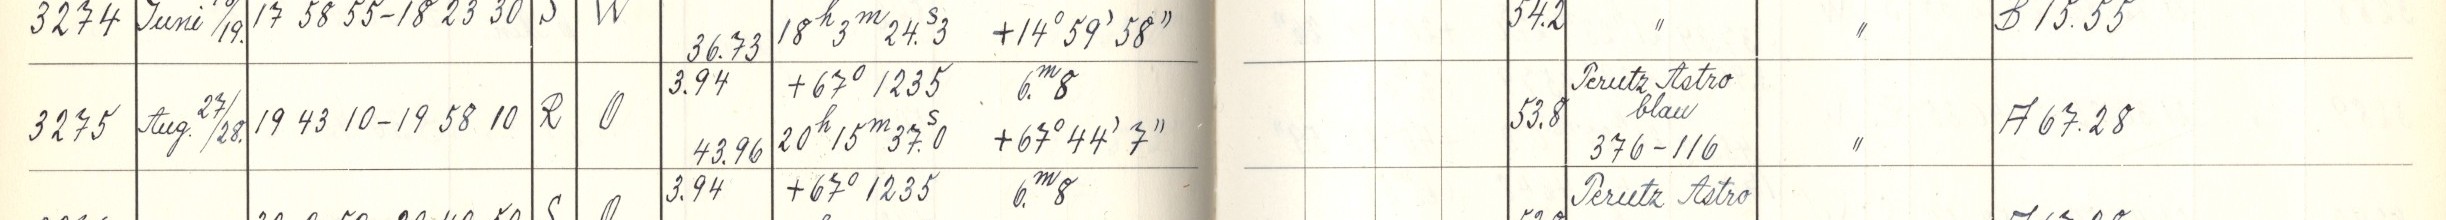 3274 Juni /19. 17 58 55-18 23 30 S W 36.73 18h 3m 24.s3 +14° 59' 58" 54.2 " " B 15.55
3.94 +67° 1235 6.m8 Perutz Astro
3275 Aug. 27/28. 19 43 10-19 58 10 R O 53.8 blau A 67.28
43.96 20h 15m 37.s0 +67° 44' 7" 376-116 "
3.94 +67° 1235 6.m8 Perutz Astro